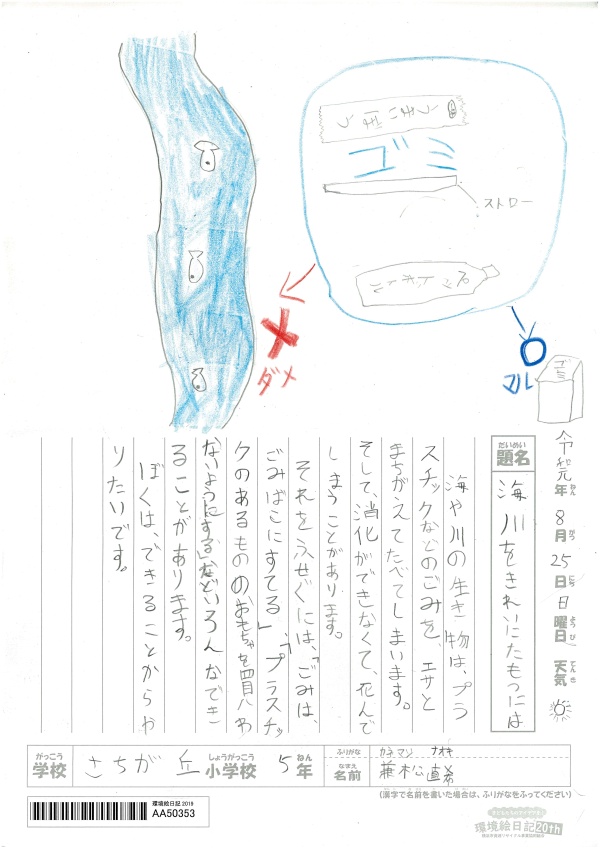 うまいぼう
ゴミ
ストロー
ペットボトル
ダメ
マル
ゴミ
令和元年 8月25日 日曜日 天気
ねん がつ にち ようび てんき
だいめい
題名 海川をきれいにたもつには
海や川の生き物は、プラ
スチックなどのごみを、エサと
まちがえてたべてしまいます。
そして、消化ができなくて、死んで
しまうことがあります。
それをふせぐには、「ごみは、
ごみばこにすてる」、「プラスチッ
クのあるもののおもちゃを買わ
ないようにする」などいろんなでき
ることがあります。
ぼくは、できることからや
りたいです。
がっこう しょうがっこう ねん ふりがな カネマツ ナオキ
学校 さちが丘 小学校 5年 なまえ 名前 兼松直希
(漢字で名前を書いた場合は、ふりがなをふってください)
環境絵日記 2019
AA50353
環境絵日記20th